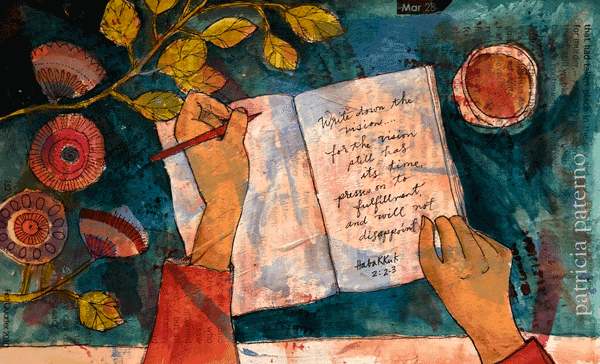 Mar 28
Write down the
vision...
for the vision
still has
its time,
presses on to
fulfillment
and will not
disappoint
Habakkuk
2:2-3
patricia paterno